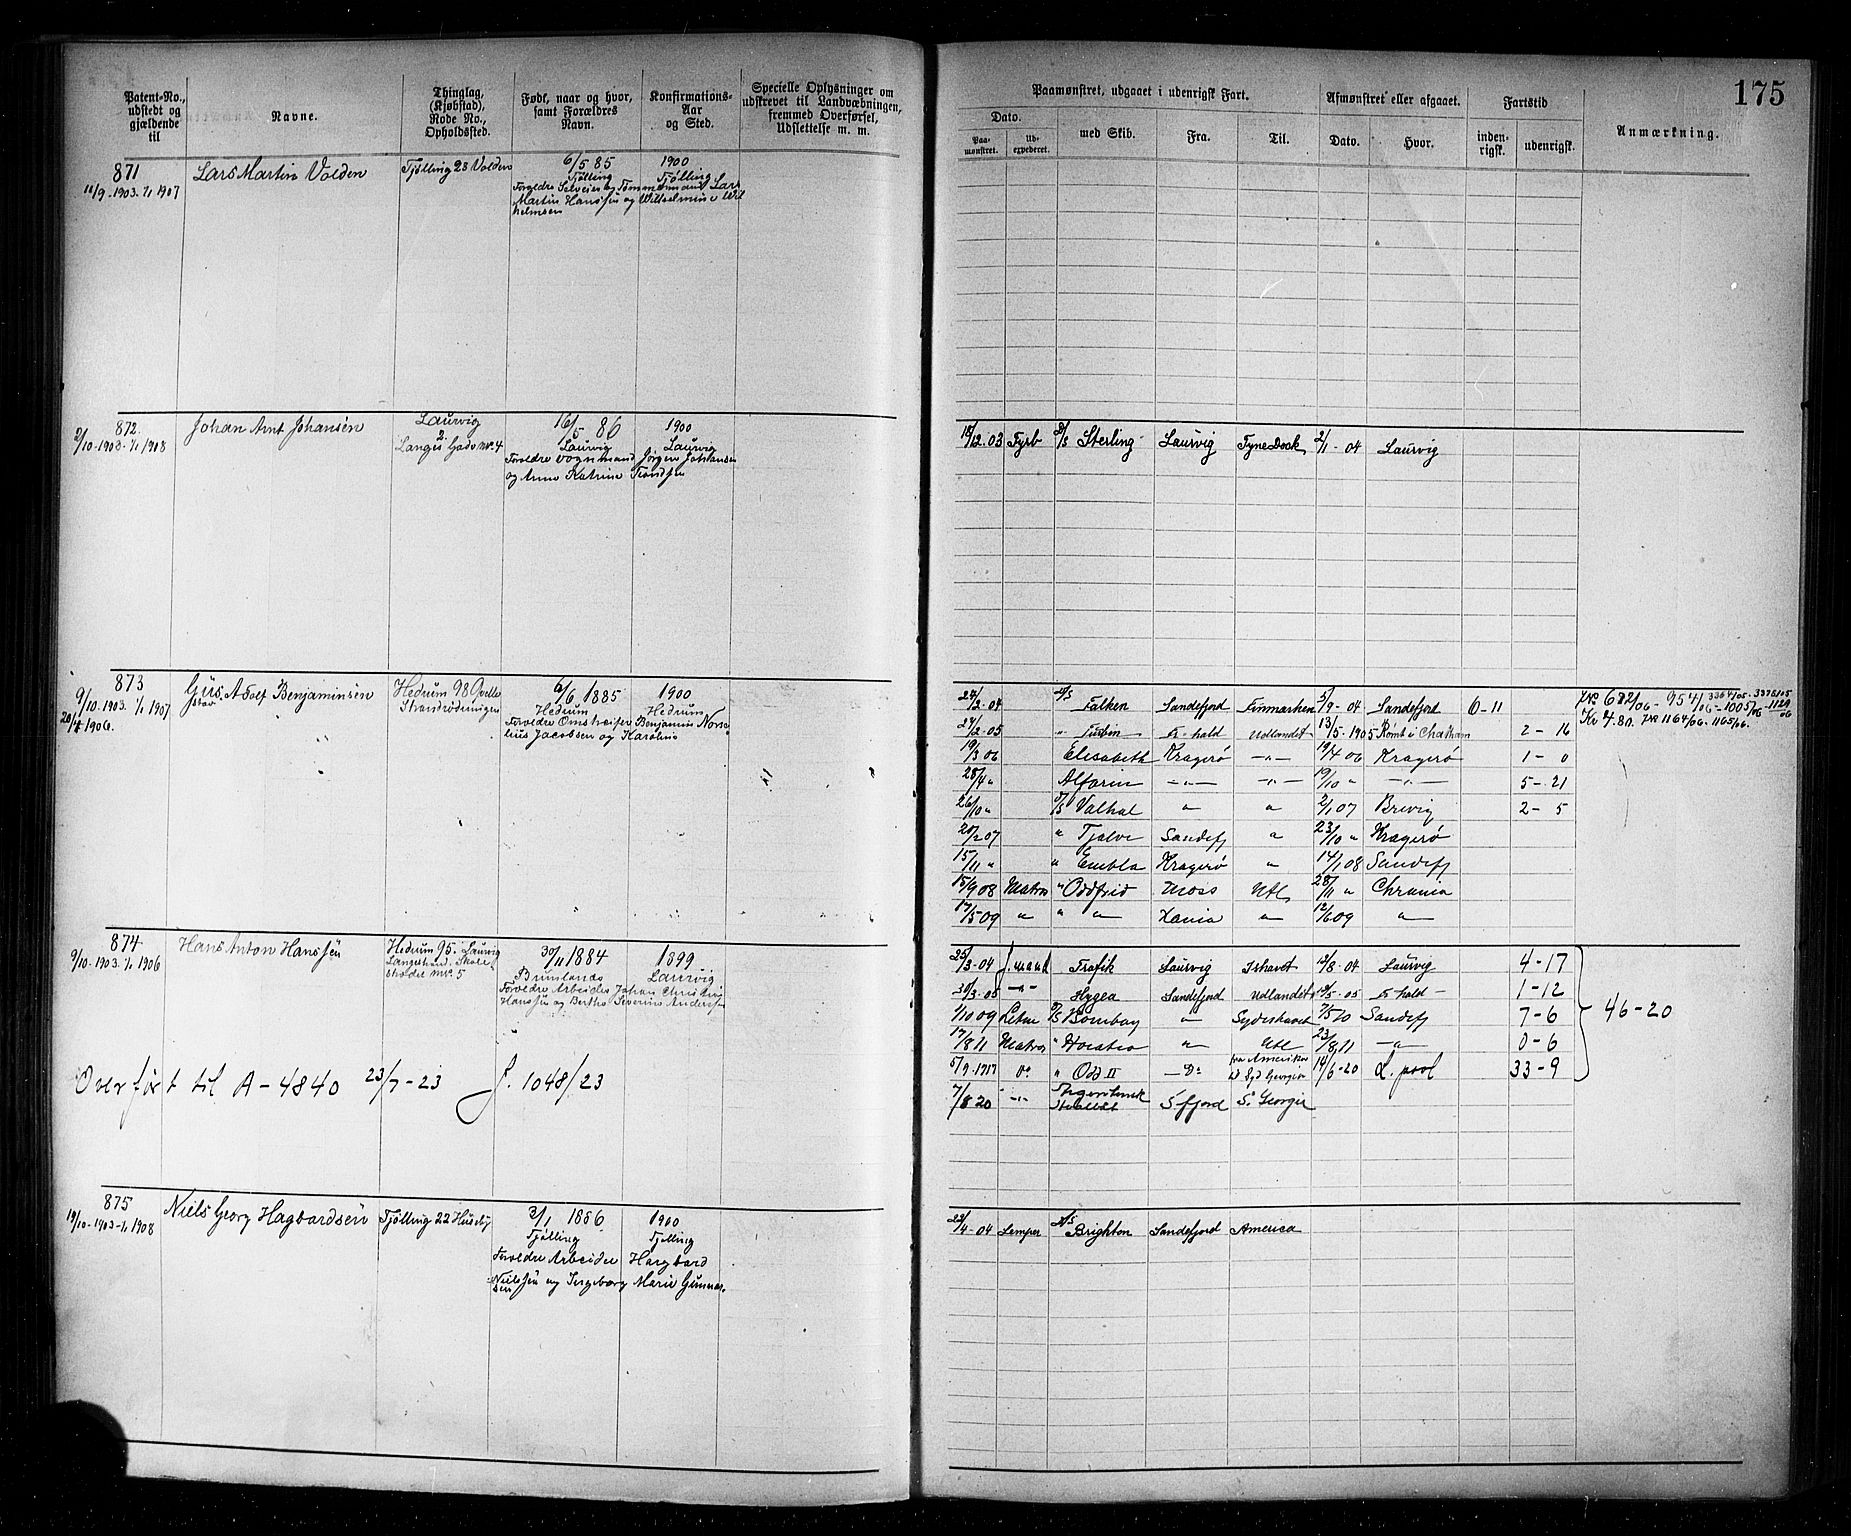 175
Patent-No., udstedt og gjældende til
Navne.
Thinglag, (Kjøbstad), Rode No., Opholdssted.
Født, naar og hvor, samt Forældres Navn.
Konfirmations-Aar og Sted.
Specielle Oplysninger om udskrevet til Landvæbningen, fremmed Overførsel, Udslettelse m. m.
Paamønstret, udgaaet i udenrigsk Fart.
Dato.
Paa-mønstret.
Ud-expederet.
med Skib.
Fra.
Til.
Afmønstret eller afgaaet.
Dato.
Hvor.
Fartstid
inden-rigsk.
udenrigsk.
Anmærkning.
871
11/9-1903. 1/1 1907
Lars Martin Volden
Tjølling 28 Volden
6/5 85
Tjølling
1900
Tjølling
Forældre Selveier og Tømmermand Lars
Martin Hanssen og Wilhelmine Wil
helmsen
872.
2/10-1903. 1/1 1908
Johan Arnt Johansen
Laurvig
2.
Langes Gade No. 4
16/5 86
Laurvig
1900
Laurvig
Forældre Vognmand Jørgen Johansen
og Anne Katrine Trondsen
18/12.03 Fyrb D/S Sterling Laurvig Tyne Dock 2/1-04 Laurvig
873
9/10.1903. 1/1 1907
1906.
Gustav Adolf Benjaminsen
Hedrum 98
6/6 1885
Hedrum
1900
Hedrum
Jacobsen og Karoline
24/2-04 Falken Sandefjord Finmarken 5/9-04 Sandefjord 6-11
24/2-05 " F. hald Udlandet 13/5-1905 Rømt i Chatham 2-16
19/3 06 Elisabeth Kragerø -"- 19/4 06 Kragerø 1-0
28/4 " Alfarin -"- -"- 19/10 " -"- 5-21
26/10 " D/S Valhal " " 2/1 07 Brevig 2-5
20/2 07 " Tjalve Sandefj " 23/10 " Kragerø
15/11 " " Embla Kragerø " 14/1 08 Sandefj
15/9 08 Matros " Oddfrid Moss Utl 28/11 " Chrania
17/5 09 " " " Xania " 12/6 09 "
Kr 4.80. No 1164/06. 1165/06.
874
9/10-1903. 1/1 1906
Hans Anton Hanssen
Hedrum 95. Laurvig
Langestrand. Skole
No. 5
30/11 1884
Brunlanes
1899
Laurvig
Forældre Arbeider Johan Christian
Hanssen og Berthe Severine Andersen
Overført til A-4840 23/7-23 J. 1048/23
25/3-04 J.mand Trafik Laurvig Ishavet 13/8-04 Laurvig 4-17
30/3.05 -"- Hygea Sandefjord Udlandet /5-05 F. hald 1-12
1/10 09 D/S Bombay -"- Sydishavet 7/5 10 Sandefj 7-6
17/8 11 Matros " Horatio " Utl 23/8.11 -"- 0-6
5/9.1917 Do " Odd II -Do fra Amerika
til Syd Georgia 14/6-20 L.pool 33-9
46-20
7/8 20 -"- S fjord S. Georgia
875
19/10-1903-1/1 1908
Niels Georg Hagbardsen
Tjølling 22 Huseby
2/1 1886
Tjølling
1900
Tjølling
Forældre Arbeider Hagbard
Nielssen og Ingeborg Marie Gunnar-
sen
23/4-04 Lemper D/S Brighton Sandefjord America